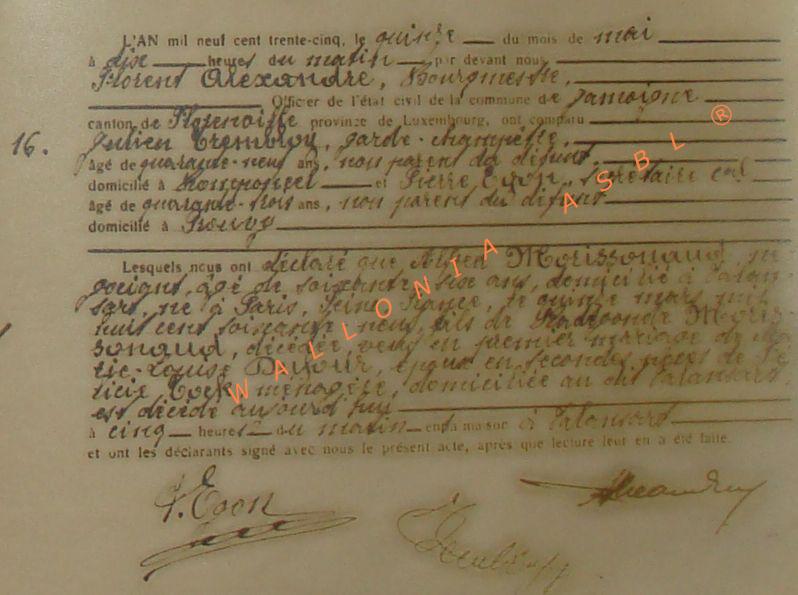 L'AN mil neuf cent trente-cinq, le quinze du mois de mai
à dix heures du matin par devant nous
Florent Alexandre, Bourgmestre,
Officier de l'état civil de la commune de Jamoigne
canton de Florenville province de Luxembourg, ont comparu
16.
Julien, garde-champêtre,
âgé de quarante-neuf ans, non parent du défunt,
domicilié à et Pierre Egon, secrétaire cal
âgé de quarante-trois ans, non parent du défunt
domicilié à
Lesquels nous ont déclaré que Albert Morissonaud, né
gociant, âgé de soixante-six ans, domicilié à Valan
sart, né à Paris, Seine, France, le quinze mars mil
huit cent soixante neuf, fils de Radegonde Moris
sonaud, décédée, veuf en premier mariage de Ma
rie-Louise Dufour, époux en secondes noces de Fé
licie, ménagère, domiciliée au dit Valansart,
est décédé aujourd'hui
à cinq heures du matin en sa maison à Valansart
et ont les déclarants signé avec nous le présent acte, après que lecture leur en a été faite.
WALLONIA ASBL ®